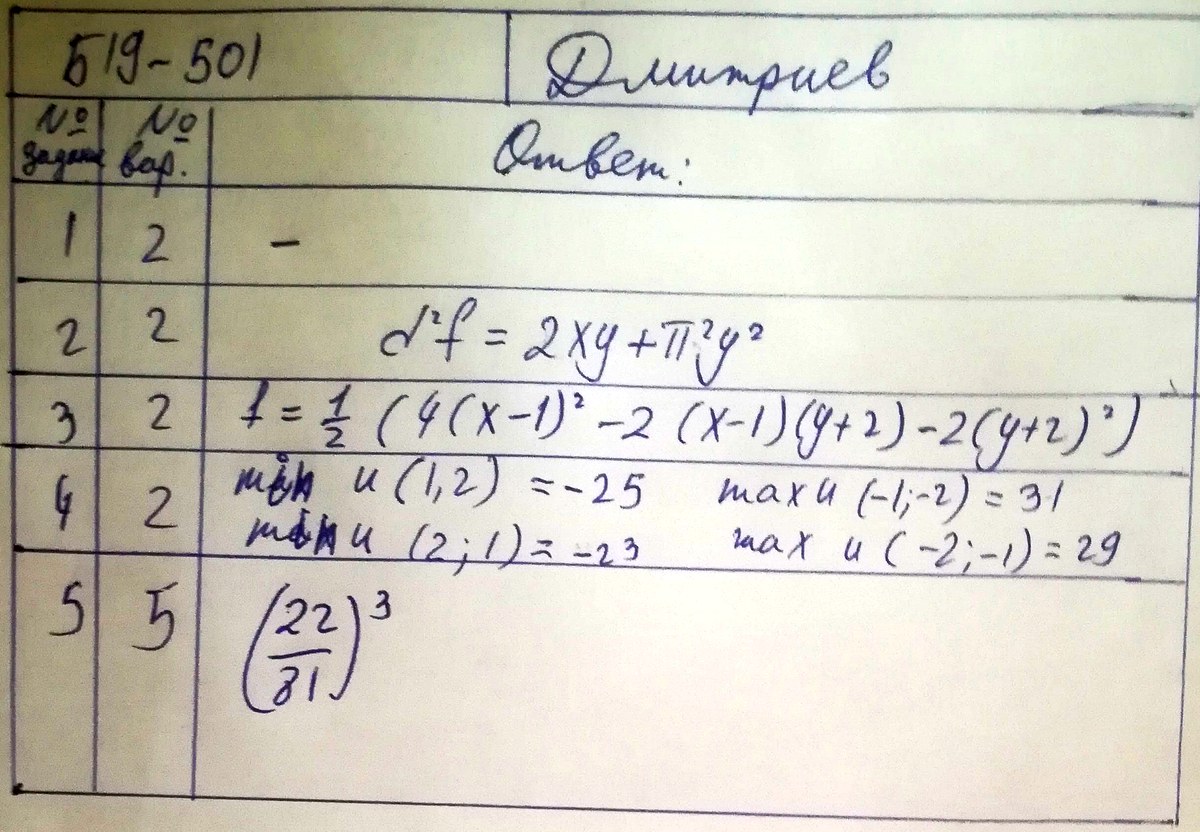 Б19-501 Дмитриев
№ задачи № вар. Ответ:
1 2 -
2 2 d²f = 2xy + π²y²
3 2 f = 1/2 (4(x-1)² - 2 (x-1)(y+2) - 2(y+2)²)
4 2 min u (1,2) = -25 max u (-1;-2) = 31
min u (2;1) = -23 max u (-2;-1) = 29
5 5 (22/31)³